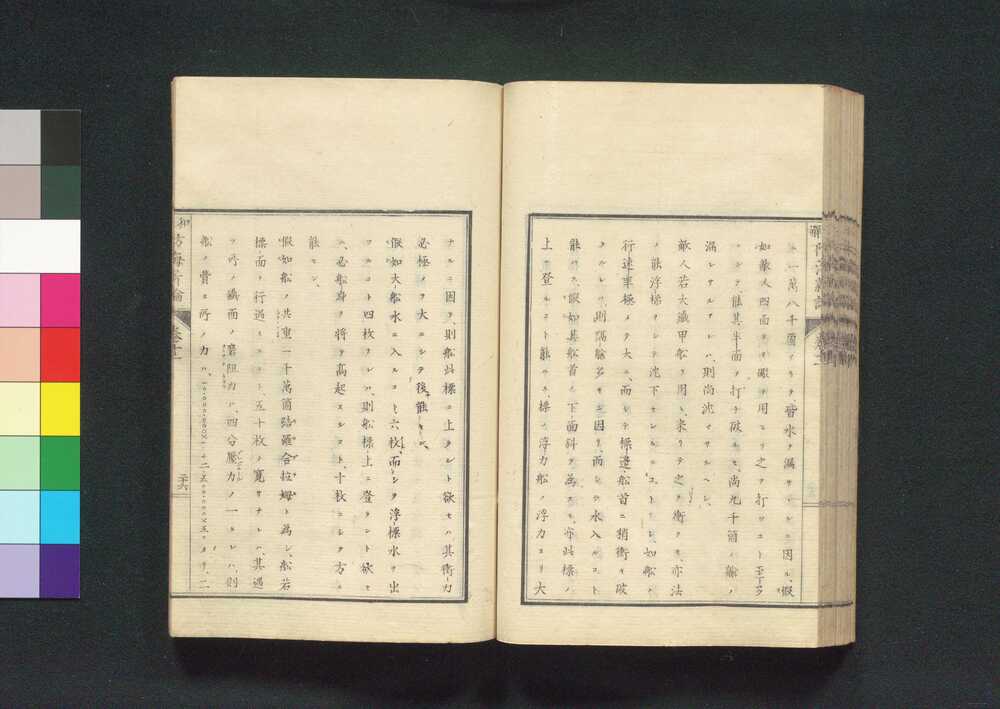 一萬八千箇アリテ、皆水ヲ漏サシムニ因ル、假
如敵人四面ヨリ礮ヲ用ヒテ之ヲ打ツコト
能其半面ヲ打チ破ルモ、尚九千箇ノ
漏レサルアレハ、則尚沈マサルヘシ、
敵人若大鐵甲船ヲ用ヒ、來リテ之ヲ衝クモ亦法
ノ能浮標ヲシテ沈下セシムルコトナシ、如船ノ
行速率極メテ大ニ、而シテ標邊船首ニ稍衝キ破
ラルレハ、則隔艙多キニ因リ、而シテ水入ルコト
能ハス、假如其船首ノ下面斜ヲ爲スモ、亦此標ノ
上ニ登ルコト能ハス、標ノ浮力船ノ浮力ヨリ大
ナルニ因テ、則船此標ニ上ラント欲セハ其衝力
必極メテ大ニシテ後能セン、
假如大船水ニ入ルコト六枚、而シテ浮標水ヲ出
ツルコト四枚ナレハ、則船標上ニ登ラント欲セ
ハ、必船身ヲ將テ高起スルコト、十枚ニシテ方ニ
能セン、
假如船ノ共重一千萬箇啓羅合拉姆ト爲シ、船若
標面ヲ行過スルコト、五十枚ノ寛サナレハ、其過
ル所ノ鐵面ノ磨阻力ハ、四分壓力ノ一ナレハ、則
船ノ費ス所ノ力ハ、
防海新論
卷十一
二十六